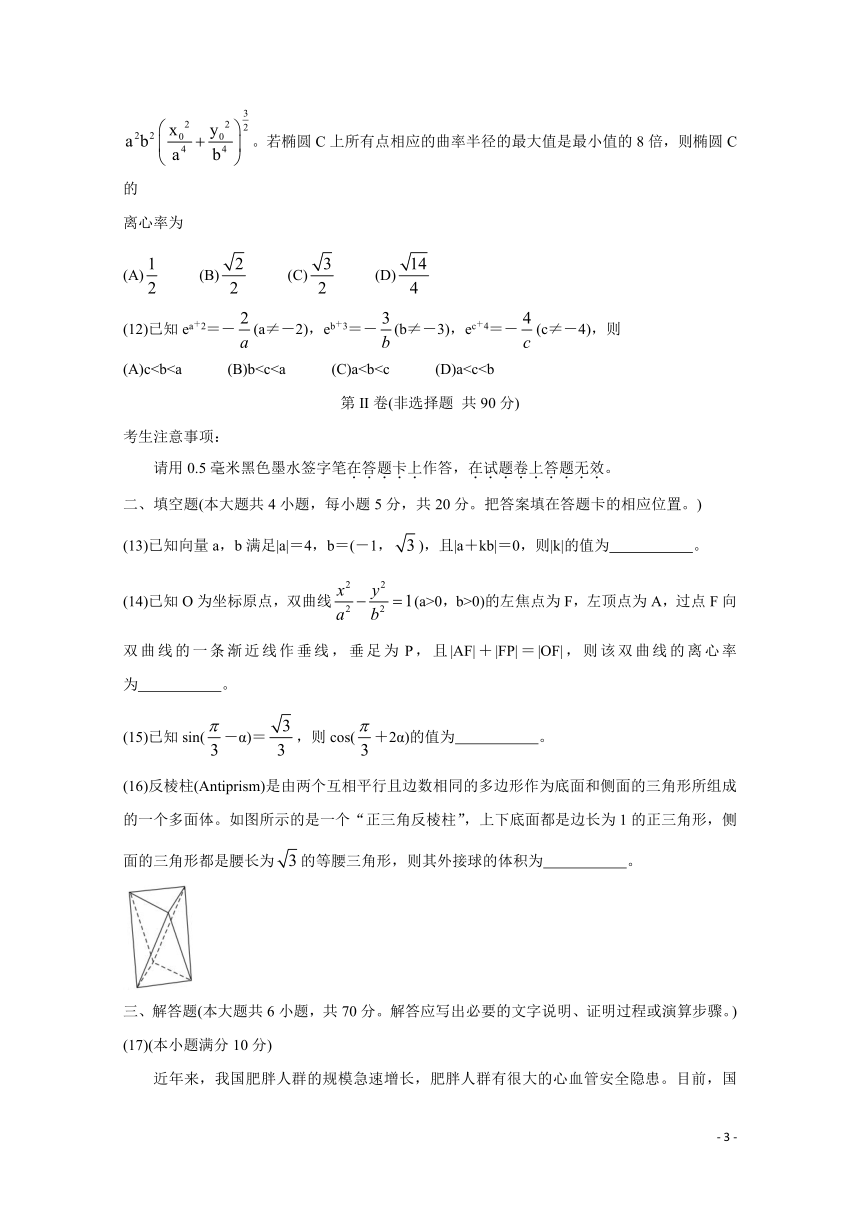 a²b²(x₀²/a⁴+y₀²/b⁴)^(3/2)。若椭圆 C 上所有点相应的曲率半径的最大值是最小值的 8 倍，则椭圆 C
的
离心率为
(A)1/2 (B)√2/2 (C)√3/2 (D)√14/4
(12)已知 eᵃ⁺²＝－2/a(a≠－2)，eᵇ⁺³＝－3/b(b≠－3)，eᶜ⁺⁴＝－4/c(c≠－4)，则
(A)c<b<a (B)b<c<a (C)a<b<c (D)a<c<b
第 II 卷(非选择题 共 90 分)
考生注意事项：
请用 0.5 毫米黑色墨水签字笔在答题卡上作答，在试题卷上答题无效。
二、填空题(本大题共 4 小题，每小题 5 分，共 20 分。把答案填在答题卡的相应位置。)
(13)已知向量 a，b 满足|a|＝4，b＝(－1，√3)，且|a＋kb|＝0，则|k|的值为____________。
(14)已知 O 为坐标原点，双曲线x²/a²－y²/b²＝1(a>0，b>0)的左焦点为 F，左顶点为 A，过点 F 向
双曲线的一条渐近线作垂线，垂足为 P，且|AF|＋|FP|＝|OF|，则该双曲线的离心率
为____________。
(15)已知 sin(π/3－α)＝√3/3，则 cos(π/3＋2α)的值为____________。
(16)反棱柱(Antiprism)是由两个互相平行且边数相同的多边形作为底面和侧面的三角形所组成
的一个多面体。如图所示的是一个“正三角反棱柱”，上下底面都是边长为 1 的正三角形，侧
面的三角形都是腰长为√3的等腰三角形，则其外接球的体积为____________。
三、解答题(本大题共 6 小题，共 70 分。解答应写出必要的文字说明、证明过程或演算步骤。)
(17)(本小题满分 10 分)
近年来，我国肥胖人群的规模急速增长，肥胖人群有很大的心血管安全隐患。目前，国
- 3 -